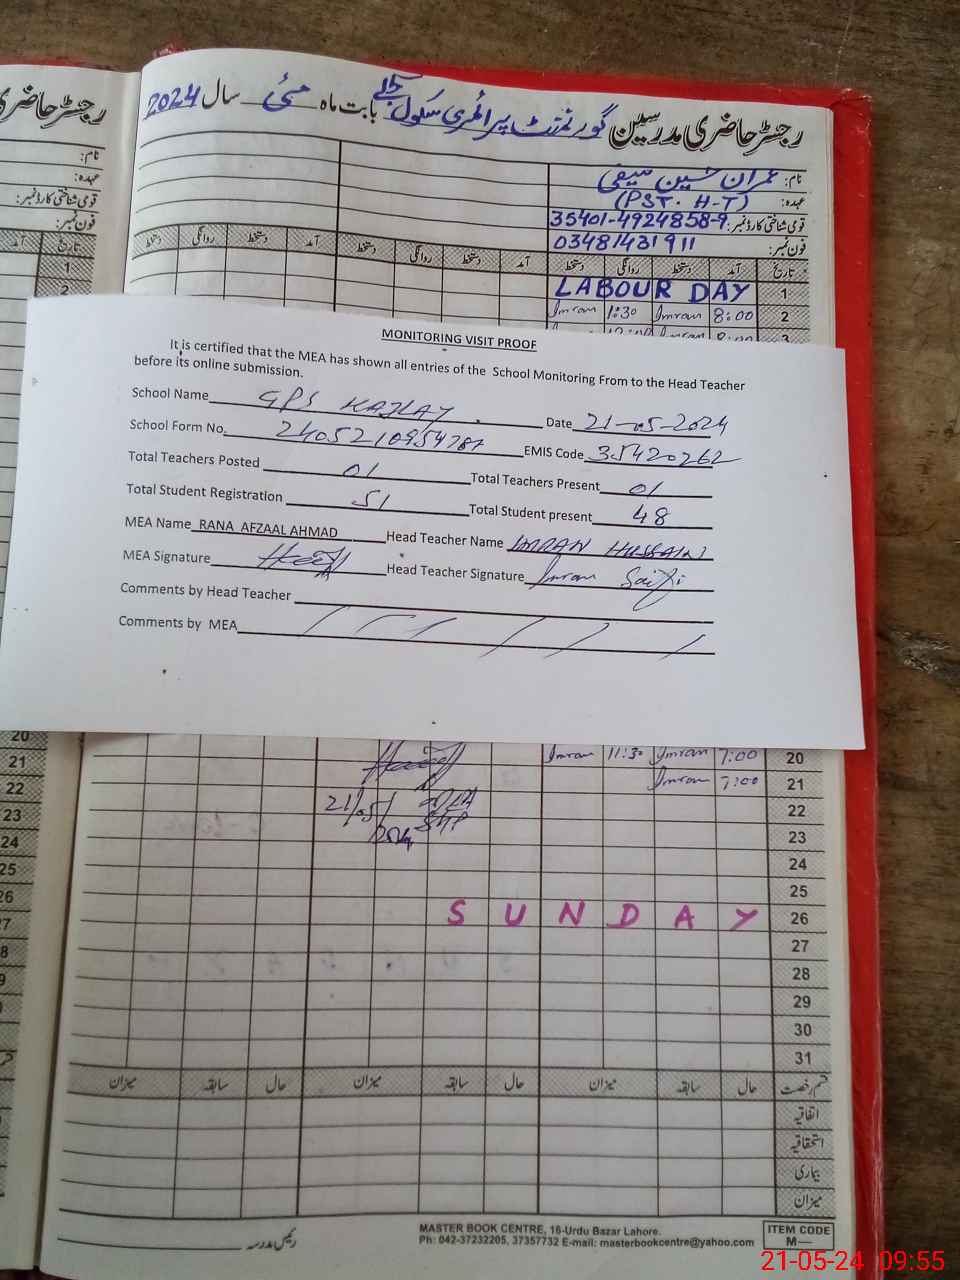 رجسٹر حاضری مدرسین گورنمنٹ پرائمری سکول کجلے بابت ماہ مئی سال 2024
رجسٹر حاضری
نام: عمران حسین سیفی
عہدہ: (PST. H-T)
قومی شناختی کارڈ نمبر: 35401-4924858-9
فون نمبر: 03481431911
نام:
عہدہ:
قومی شناختی کارڈ نمبر:
فون نمبر:
تاریخ آمد دستخط روانگی دستخط آمد دستخط روانگی دستخط آمد دستخط روانگی دستخط
1 LABOUR DAY
2 8:00 Imran 1:30 Imran
3 8:00 Imran 12:00
MONITORING VISIT PROOF
It is certified that the MEA has shown all entries of the School Monitoring From to the Head Teacher
before its online submission.
School Name GPS KAJLAY Date 21-05-2024
School Form No. 2405210954787 EMIS Code 35420262
Total Teachers Posted 01 Total Teachers Present 01
Total Student Registration 51 Total Student present 48
MEA Name RANA AFZAAL AHMAD Head Teacher Name IMRAN HUSSAIN
MEA Signature Head Teacher Signature Imran Saifi
Comments by Head Teacher
Comments by MEA
20 7:00 Imran 11:30 Imran
21 7:00 Imran
22
21/05/2024
23
24
25
26 SUNDAY
27
28
29
30
31
قسم رخصت حال سابقہ میزان حال سابقہ میزان حال سابقہ میزان
اتفاقیہ
استحقاقیہ
بیماری
میزان
رئیس مدرسہ
MASTER BOOK CENTRE, 16-Urdu Bazar Lahore.
Ph: 042-37232205, 37357732 E-mail: masterbookcentre@yahoo.com
ITEM CODE
M—
21-05-24 09:55